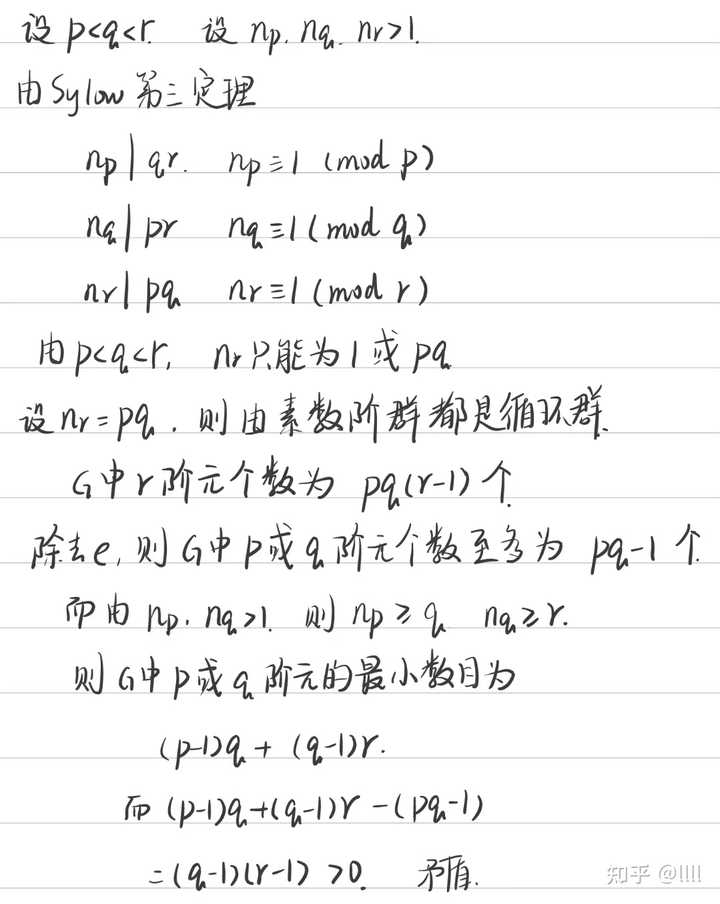 设 p<q<r. 设 np, nq, nr>1.
由 Sylow 第三定理
np | qr. np≡1 (mod p)
nq | pr nq≡1 (mod q)
nr | pq nr≡1 (mod r)
由 p<q<r, nr只能为1或pq
设 nr=pq, 则由素数阶群都是循环群.
G中r阶元个数为 pq(r-1)个
除去e, 则G中p或q阶元个数至多为 pq-1个.
而由 np, nq>1. 则 np≥q nq≥r.
则G中p或q阶元的最小数目为
(p-1)q + (q-1)r.
而 (p-1)q+(q-1)r-(pq-1)
=(q-1)(r-1) >0. 矛盾.
知乎 @llll